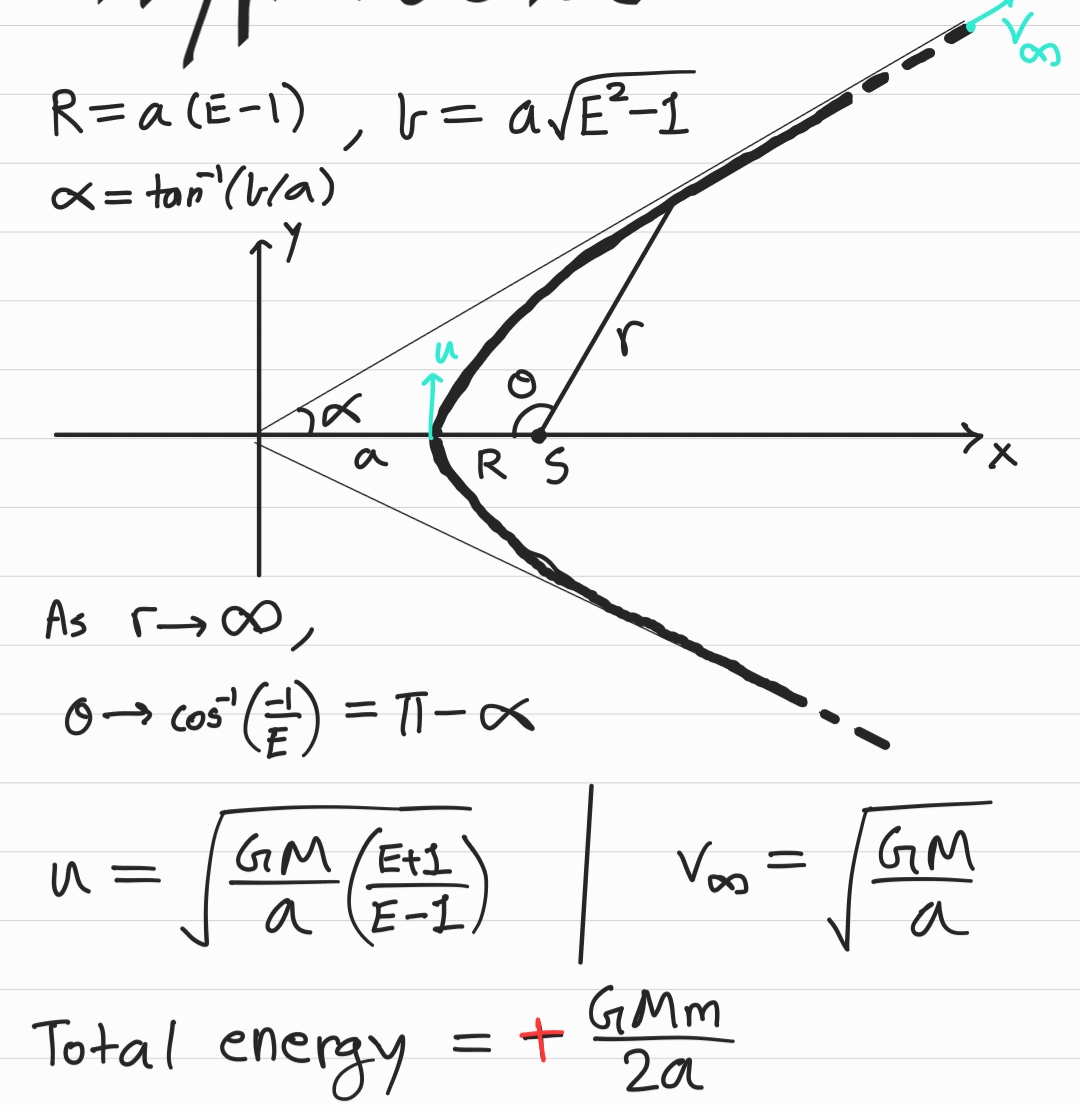 R = a (E-1) , b = a√(E²-1)
α = tan⁻¹(b/a)
v∞
y
u
θ
r
α
a
R
S
x
As r → ∞,
θ → cos⁻¹(-1/E) = π - α
u = √(GM/a (E+1/E-1)) | v∞ = √(GM/a)
Total energy = + GMm/2a